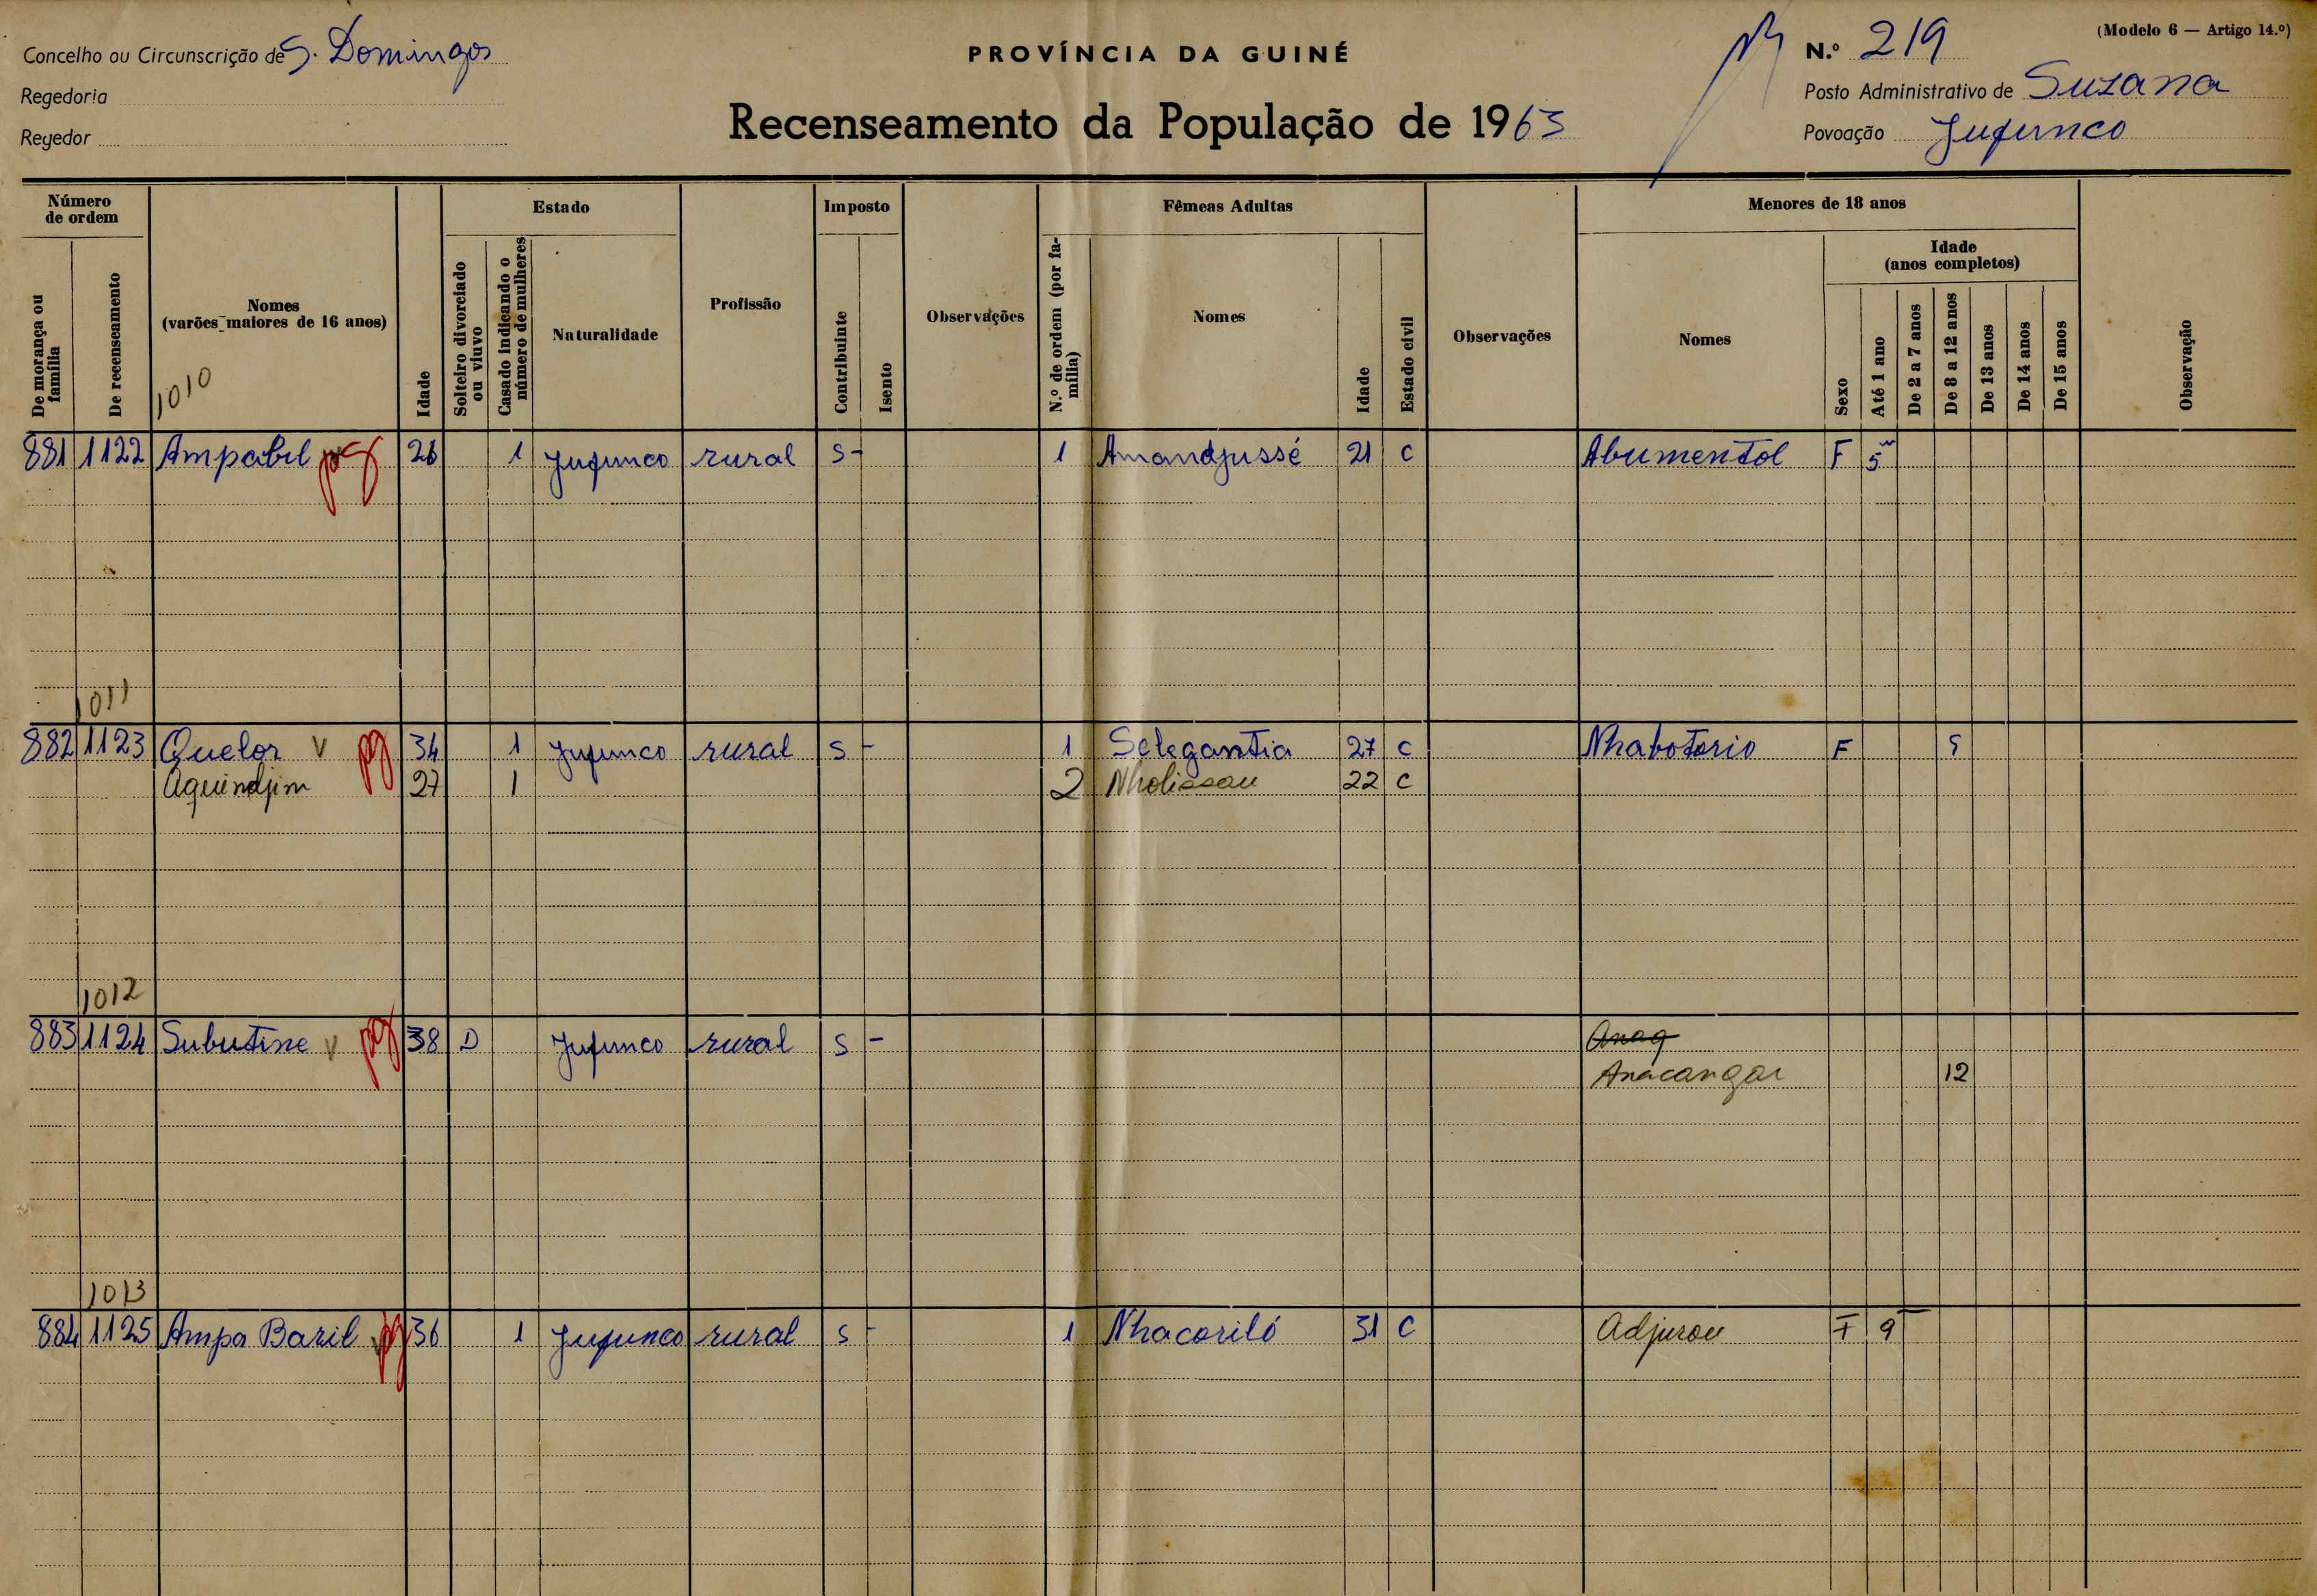 Concelho ou Circunscrição de S. Domingos
Regedoria
Regedor
PROVÍNCIA DA GUINÉ
Recenseamento da População de 1963
(Modelo 6 — Artigo 14.º)
N.º 219
Posto Administrativo de Suzana
Povoação Jufunco
Número de ordem
De morança ou família
De recenseamento
Nomes
(varões maiores de 16 anos)
1010
Idade
Estado
Solteiro divorciado ou viuvo
Casado indicando o número de mulheres
Naturalidade
Profissão
Imposto
Contribuinte
Isento
Observações
Fêmeas Adultas
N.º de ordem (por família)
Nomes
Idade
Estado civil
Observações
Menores de 18 anos
Nomes
Sexo
Idade
(anos completos)
Até 1 ano
De 2 a 7 anos
De 8 a 12 anos
De 13 anos
De 14 anos
De 15 anos
Observação
881 1122 Ampabil pg 26 1 Jufunco rural S - 1 Amandjussé 21 C Abumentol F 5 m
1011
882 1123 Quelor V pg 34 1 Jufunco rural S - 1 Selegantia 27 C Nhabotorio F 5
Aquindjim 27 1 2 Nholissau 22 C
1012
883 1124 Subutine V pg 38 D Jufunco rural S - Anag
Anacangai 12
1013
884 1125 Ampa Bazil V pg 36 1 Jufunco rural S - 1 Nhacoriló 31 C Adjurou F 9